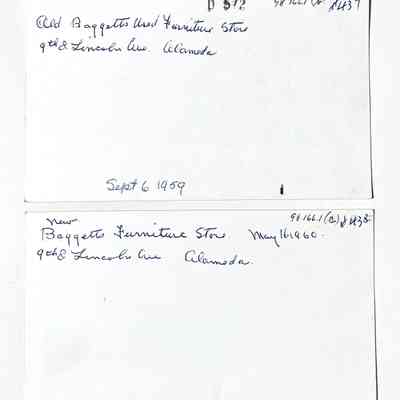 D 512
Old Baggetts Used Furniture Store
9th & Lincoln Ave. Alameda
Sept 6 1959
New
Baggetts Furniture Store May 16 1960.
9th & Lincoln Ave Alameda.